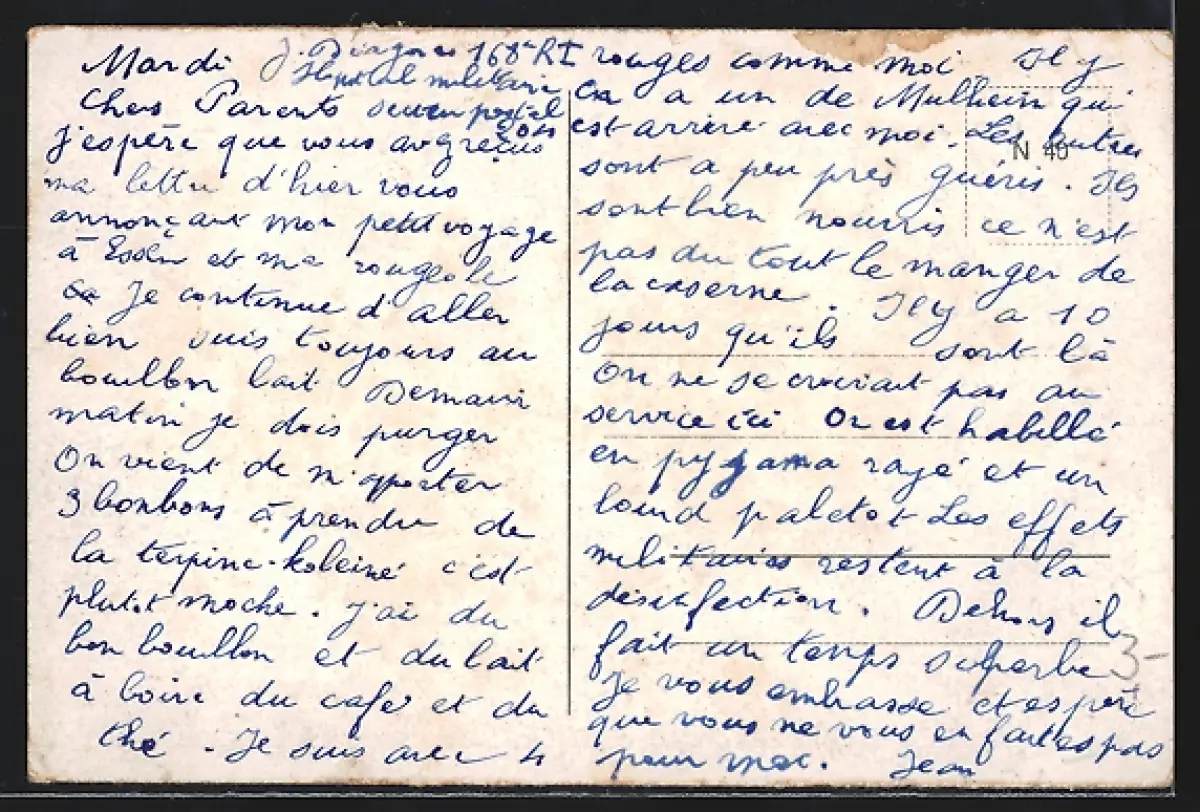 Mardi J. 168e RI
Hopital militaire
Chers Parents secteur postal
j'espère que vous avez reçus
ma lettre d'hier vous
annonçant mon petit voyage
à Essen et ma rougeole
Je continue d'aller
bien suis toujours au
bouillon lait Demain
matin je dois purger
On vient de m'apporter
3 bonbons à prendre de
la terpine-koleine c'est
plutot moche. J'ai du
bon bouillon et du lait
à boire du café et du
thé. Je suis avec 4
rouges comme moi. Il y
en a un de Mulheim qui
est arrivé avec moi. Les autres
sont a peu près guéris. Ils
sont bien nourris ce n'est
pas du tout le manger de
la caserne. Il y a 10
jours qu'ils sont là
On ne se croirait pas au
service ici On est habillé
en pyjama rayé et un
lourd paletot Les effets
militaires restent à la
desinfection. Dehors il
fait un temps superbe
Je vous embrasse et espère
que vous ne vous en faites pas
pour moi. Jean
N 40
3-